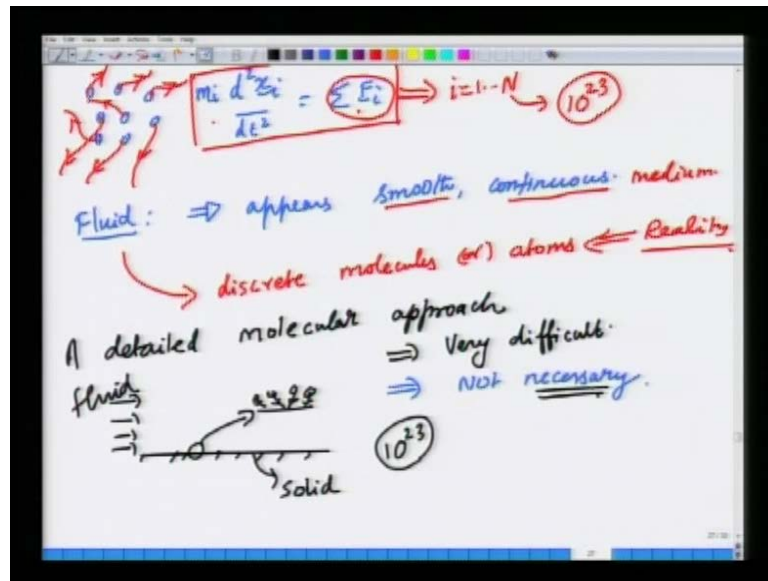 mi d²xi / dt² = Σ Fi ⇒ i=1--N → 10²³
Fluid: ⇒ appears smooth, continuous. medium.
discrete molecules (or) atoms ⇐ Reality
A detailed molecular approach
⇒ Very difficult.
fluid
⇒ NOT necessary.
10²³
solid